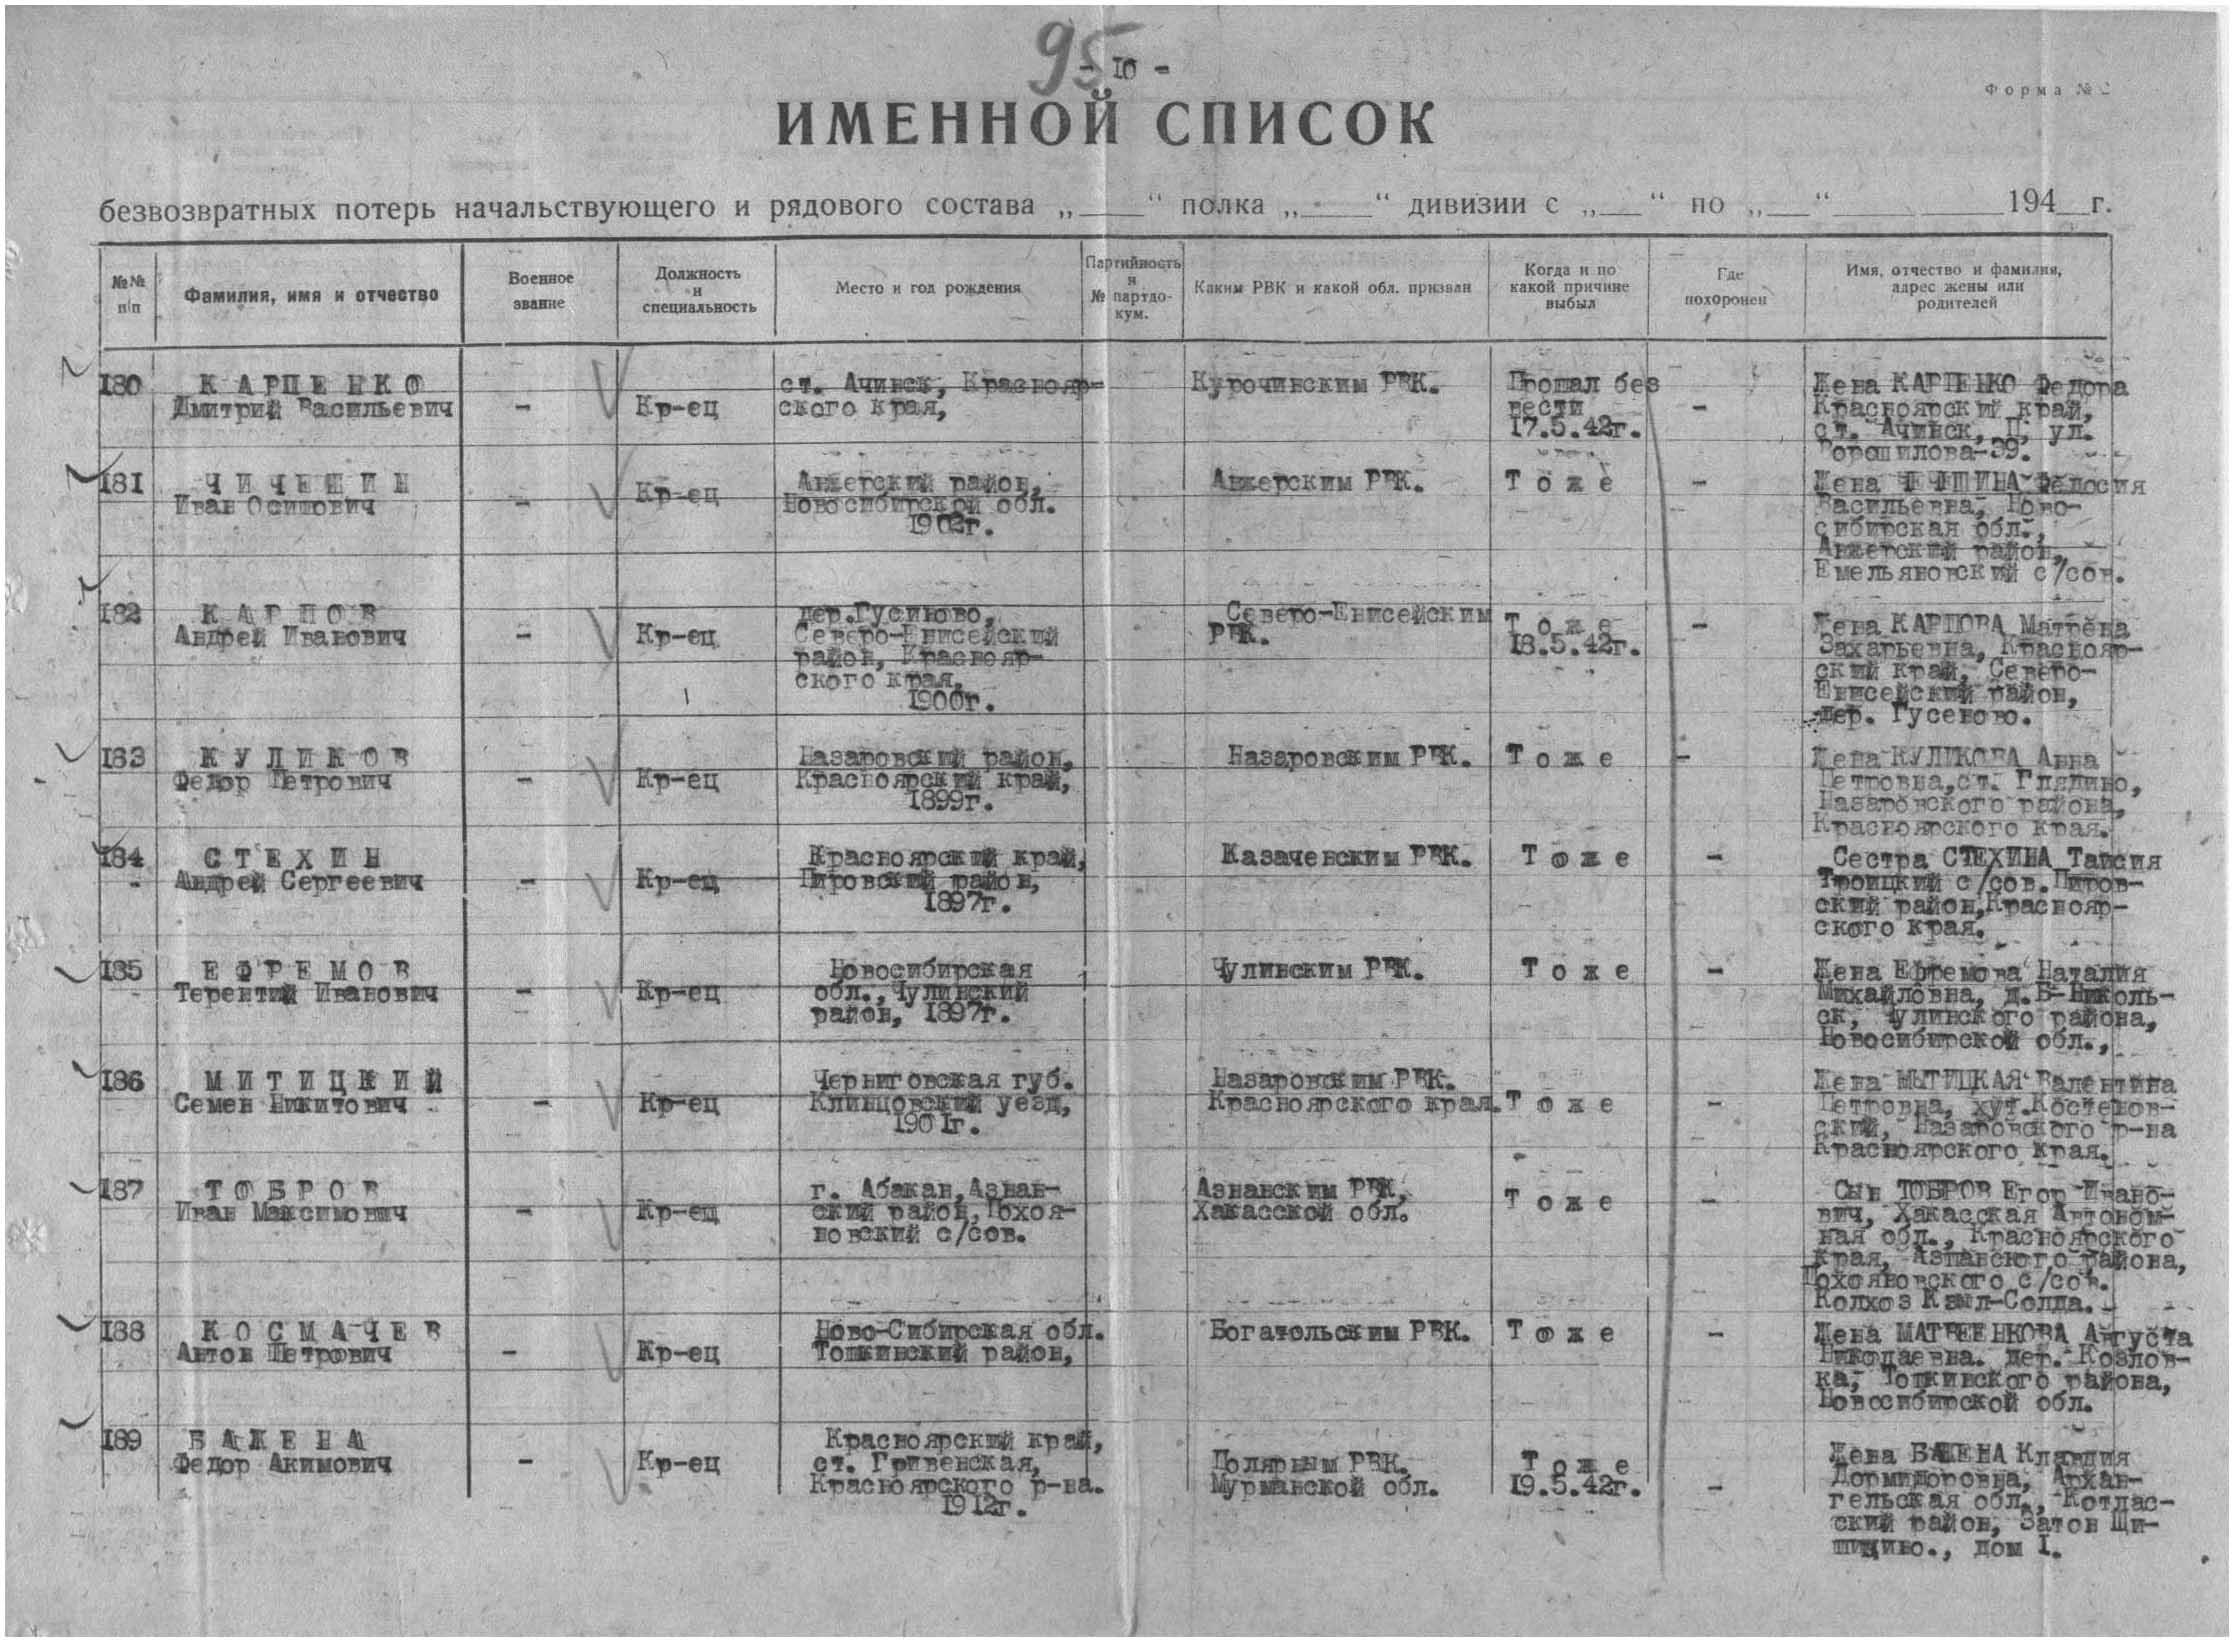 95
- 10 -
Форма № 2
ИМЕННОЙ СПИСОК
безвозвратных потерь начальствующего и рядового состава „____“ полка „____“ дивизии с „___“ по „___“ ________ 194__г.
№№ п/п
Фамилия, имя и отчество
Военное звание
Должность и специальность
Место и год рождения
Партийность и № партдо-кум.
Каким РВК и какой обл. призван
Когда и по какой причине выбыл
Где похоронен
Имя, отчество и фамилия, адрес жены или родителей
180
КАРПЕНКО
Дмитрий Васильевич
-
Кр-ец
ст. Ачинск, Краснояр-
ского края,
Курочинским РВК.
Пропал без
вести
17.5.42г.
-
Жена КАРПЕНКО Федора
Красноярский край,
ст. Ачинск, П, ул.
Ворошилова-39.
181
ЧИЧЕШИН
Иван Осипович
-
Кр-ец
Анжерский район,
Новосибирской обл.
1902г.
Анжерским РВК.
Тоже
-
Жена ЧЕЧЕШИНА Федосия
Васильевна, Ново-
сибирская обл.,
Анжерский район,
Емельяновский с/сов.
182
КАРПОВ
Андрей Иванович
-
Кр-ец
дер.Гусиново,
Северо-Енисейский
район, Краснояр-
ского края,
1900г.
Северо-Енисейским
РВК.
Тоже
18.5.42г.
-
Жена КАРПОВА Матрена
Захарьевна, Краснояр-
ский край, Северо-
Енисейский район,
дер. Гусеново.
183
КУЛИКОВ
Федор Петрович
-
Кр-ец
Назаровский район,
Красноярский край,
1899г.
Назаровским РВК.
Тоже
-
Жена КУЛИКОВА Анна
Петровна,ст. Глядино,
Назаровского района,
Красноярского края.
184
СТЕХИН
Андрей Сергеевич
-
Кр-ец
Красноярский край,
Пировский район,
1897г.
Казаченским РВК.
Тоже
-
Сестра СТЕХИНА Таисия
Троицкий с/сов.Пиров-
ский район,Краснояр-
ского края.
185
ЕФРЕМОВ
Терентий Иванович
-
Кр-ец
Новосибирская
обл.,Чулинский
район, 1897г.
Чулинским РВК.
Тоже
-
Жена Ефремова Наталия
Михайловна, д.Б-Николь-
ск, Чулинского района,
Новосибирской обл.,
186
МИТИЦКИЙ
Семен Никитович
-
Кр-ец
Черниговская губ.
Клинцовский уезд,
1901г.
Назаровским РВК.
Красноярского края.
Тоже
-
Жена МЫТИЦКАЯ Валентина
Петровна, хут.Костенов-
ский, Назаровского р-на
Красноярского края.
187
ТОБРОВ
Иван Максимович
-
Кр-ец
г. Абакан,Азнан-
ский район,Похоя-
новский с/сов.
Азнанским РВК,
Хакасской обл.
Тоже
-
Сын ТОБРОВ Егор Ивано-
вич, Хакасская Автоном-
ная обл., Красноярского
края, Азнанского района,
Похояновского с/сов.
Колхоз Кзыл-Солда.
188
КОСМАЧЕВ
Антон Петрович
-
Кр-ец
Ново-Сибирская обл.
Топкинский район,
Богатольским РВК.
Тоже
-
Жена МАТВЕЕНКОВА Августа
Николаевна. дер. Козлов-
ка, Топкинского района,
Новосибирской обл.
189
БАЖЕНА
Федор Акимович
-
Кр-ец
Красноярский край,
ст. Гривенская,
Красноярского р-на.
1912г.
Полярным РВК.
Мурманской обл.
Тоже
19.5.42г.
-
Жена БАЖЕНА Клавдия
Дормидоровна, Архан-
гельская обл., Котлас-
ский район, Затон Ши-
шицино., дом 1.